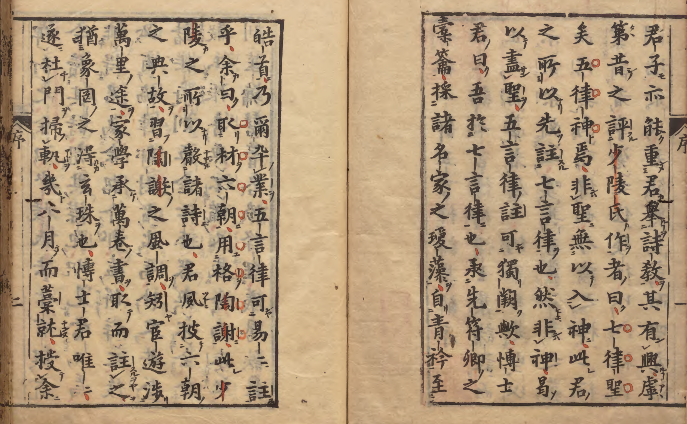 君子亦能重君舉詩教其有興虖
第昔之評少陵氏作者曰七律聖
矣五律神焉非聖無以入神此君
之所以先註七言律也然非神曷
以盡聖五言律註可獨闕歟博士
君曰吾於七言律也承先符卿之
藁籥採諸名家之瑗藻自青衿至
序
皓首乃爾卒業五言律可易〻註
乎余曰取材六朝用格陶謝此少
陵之所以聲諸詩也君風披六朝
之典故習陶謝之風調矧宦遊涉
萬里途家學承萬卷書取而註之
猶象罔之得玄珠也博士君唯〻
遂杜門掃軌幾八月而藁就授余
序 二